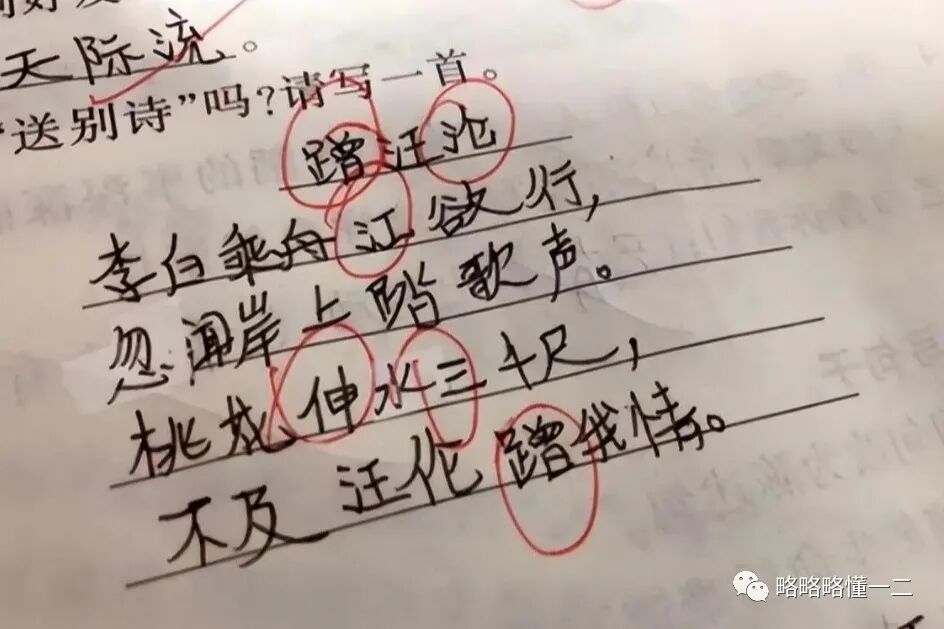 天际流。
“送别诗”吗?请写一首。
蹭汪沦
李白乘舟江欲行,
忽闻岸上踏歌声。
桃花伸水三千尺,
不及汪伦蹭我情。
略略略懂一二